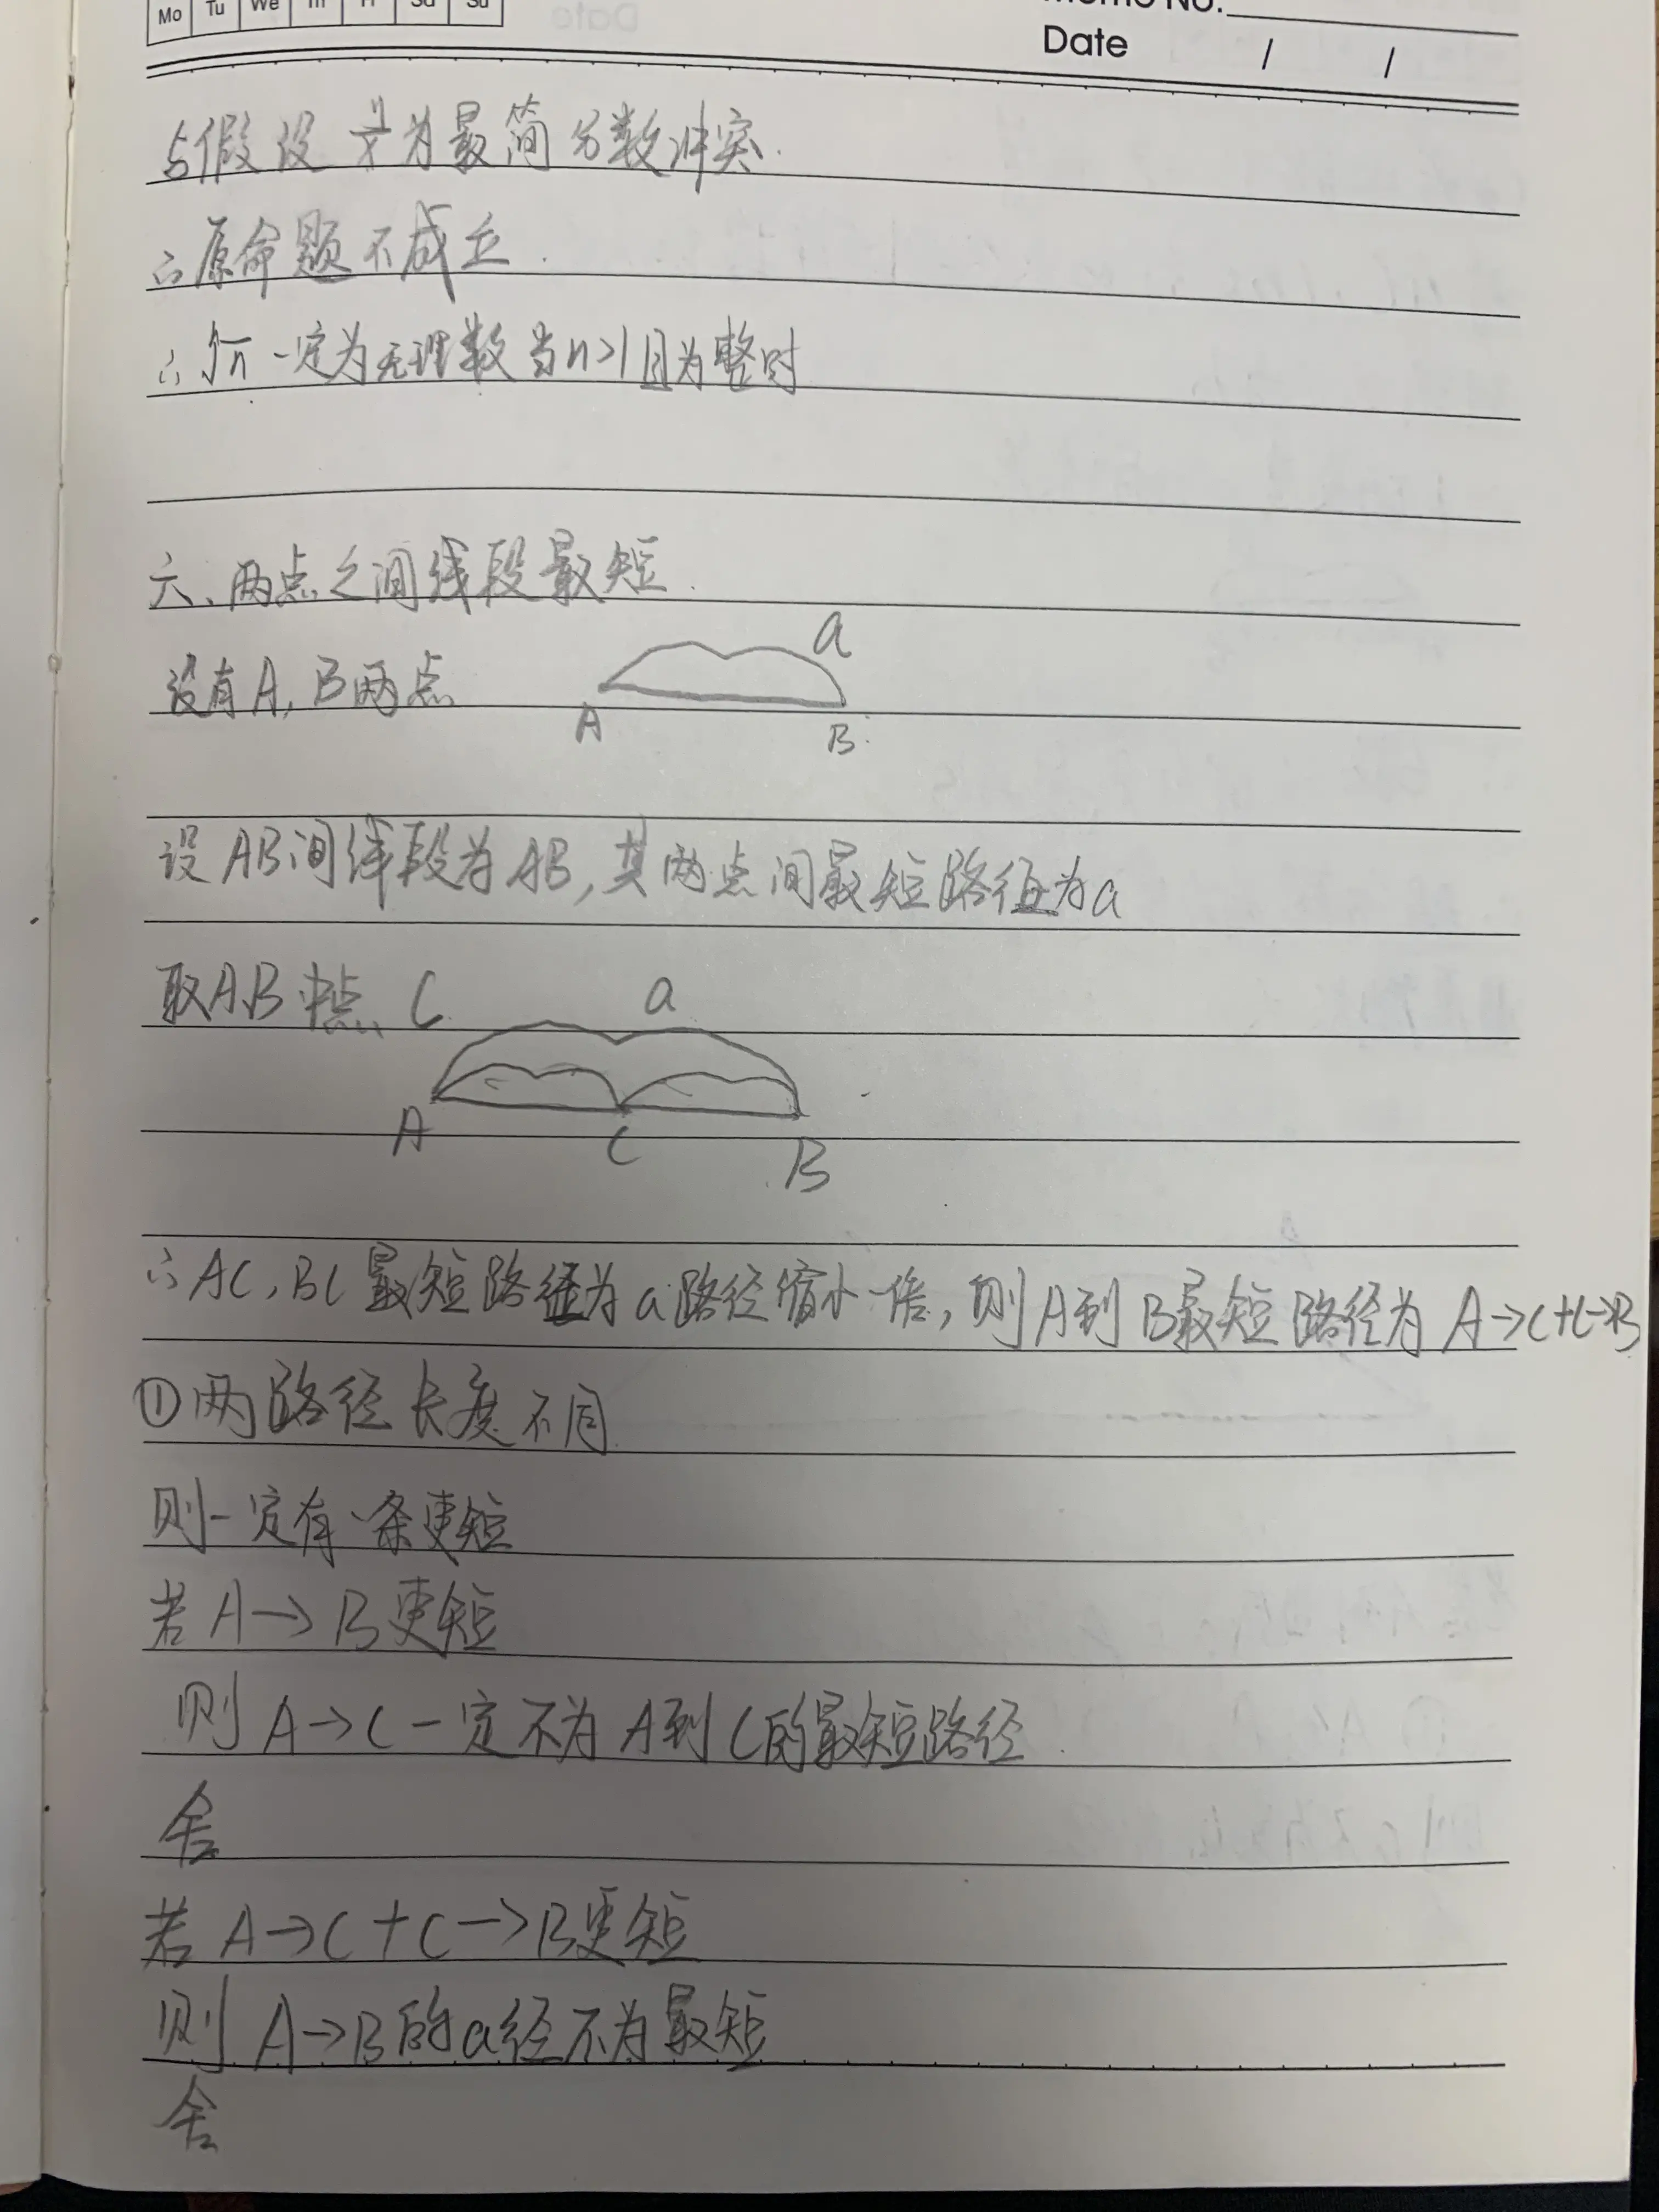 Mo Tu We Th Fr Sa Su
Memo No.
Date / /
与假设 y/x 为最简分数冲突.
∴原命题不成立.
∴ √n 一定为无理数当n>1且为整时
六、两点之间线段最短.
设有A, B两点
a
A
B
设AB间线段为AB, 其两点间最短路径为a
取AB中点 C
a
A
C
B
∴AC, BC最短路径为a路径缩小一倍, 则A到B最短路径为 A→C+C→B
①两路径长度不同
则一定有一条更短
若A→B更短
则A→C一定不为A到C的最短路径.
舍
若A→C+C→B更短
则A→B的a径不为最短
舍